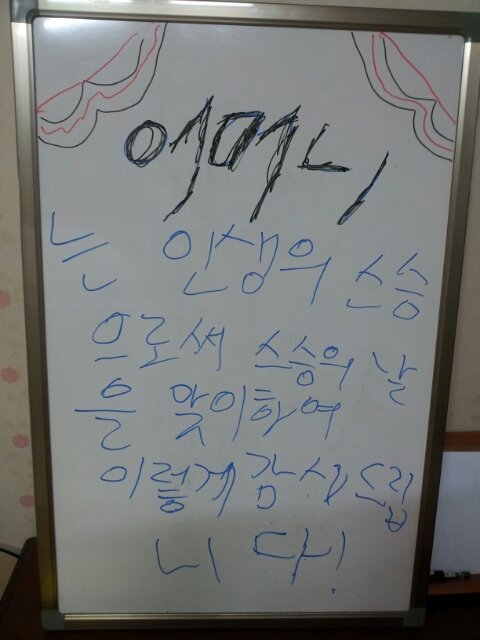 어머니
는 인생의 스승
으로써 스승의 날
을 맞이하여
이렇게 감사 드립
니다!